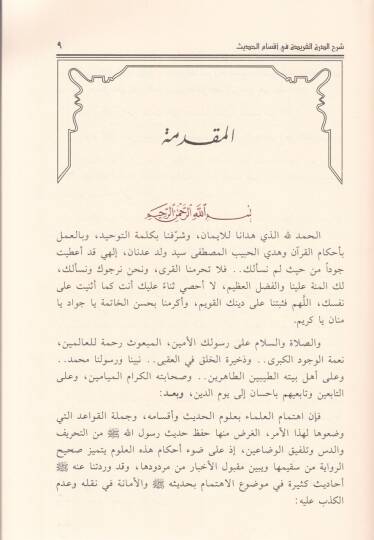 شرح الدرة الفريدة في أقسام الحديث
٩
المقدمة
بسم الله الرحمن الرحيم
الحمد لله الذي هدانا للإيمان، وشرّفنا بكلمة التوحيد، وبالعمل
بأحكام القرآن وهدي الحبيب المصطفى سيد ولد عدنان، إلهي قد أعطيت
جوداً من حيث لم نسألك.. فلا تحرمنا القرى، ونحن نرجوك ونسألك،
لك المنة علينا والفضل العظيم، لا أحصي ثناءً عليك أنت كما أثنيت على
نفسك، اللَّهم فثبتنا على دينك القويم، وأكرمنا بحسن الخاتمة يا جواد يا
منان يا كريم.
والصلاة والسلام على رسولك الأمين، المبعوث رحمة للعالمين،
نعمة الوجود الكبرى.. وذخيرة الخلق في العقبى.. نبينا ورسولنا محمد..
وعلى أهل بيته الطيبين الطاهرين.. وصحابته الكرام الميامين، وعلى
التابعين وتابعيهم بإحسان إلى يوم الدين، وبعد:
فإن اهتمام العلماء بعلوم الحديث وأقسامه، وجملة القواعد التي
وضعوها لهذا الأمر، الغرض منها حفظ حديث رسول الله ﷺ من التحريف
والدس وتلفيق الوضاعين، إذ على ضوء أحكام هذه العلوم يتميز صحيح
الرواية من سقيمها ويبين مقبول الأخبار من مردودها، وقد وردتنا عنه ﷺ
أحاديث كثيرة في موضوع الاهتمام بحديثه ﷺ والأمانة في نقله وعدم
الكذب عليه: